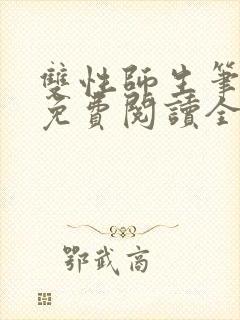 雙性師生筆
免費閱讀全
鄂武商